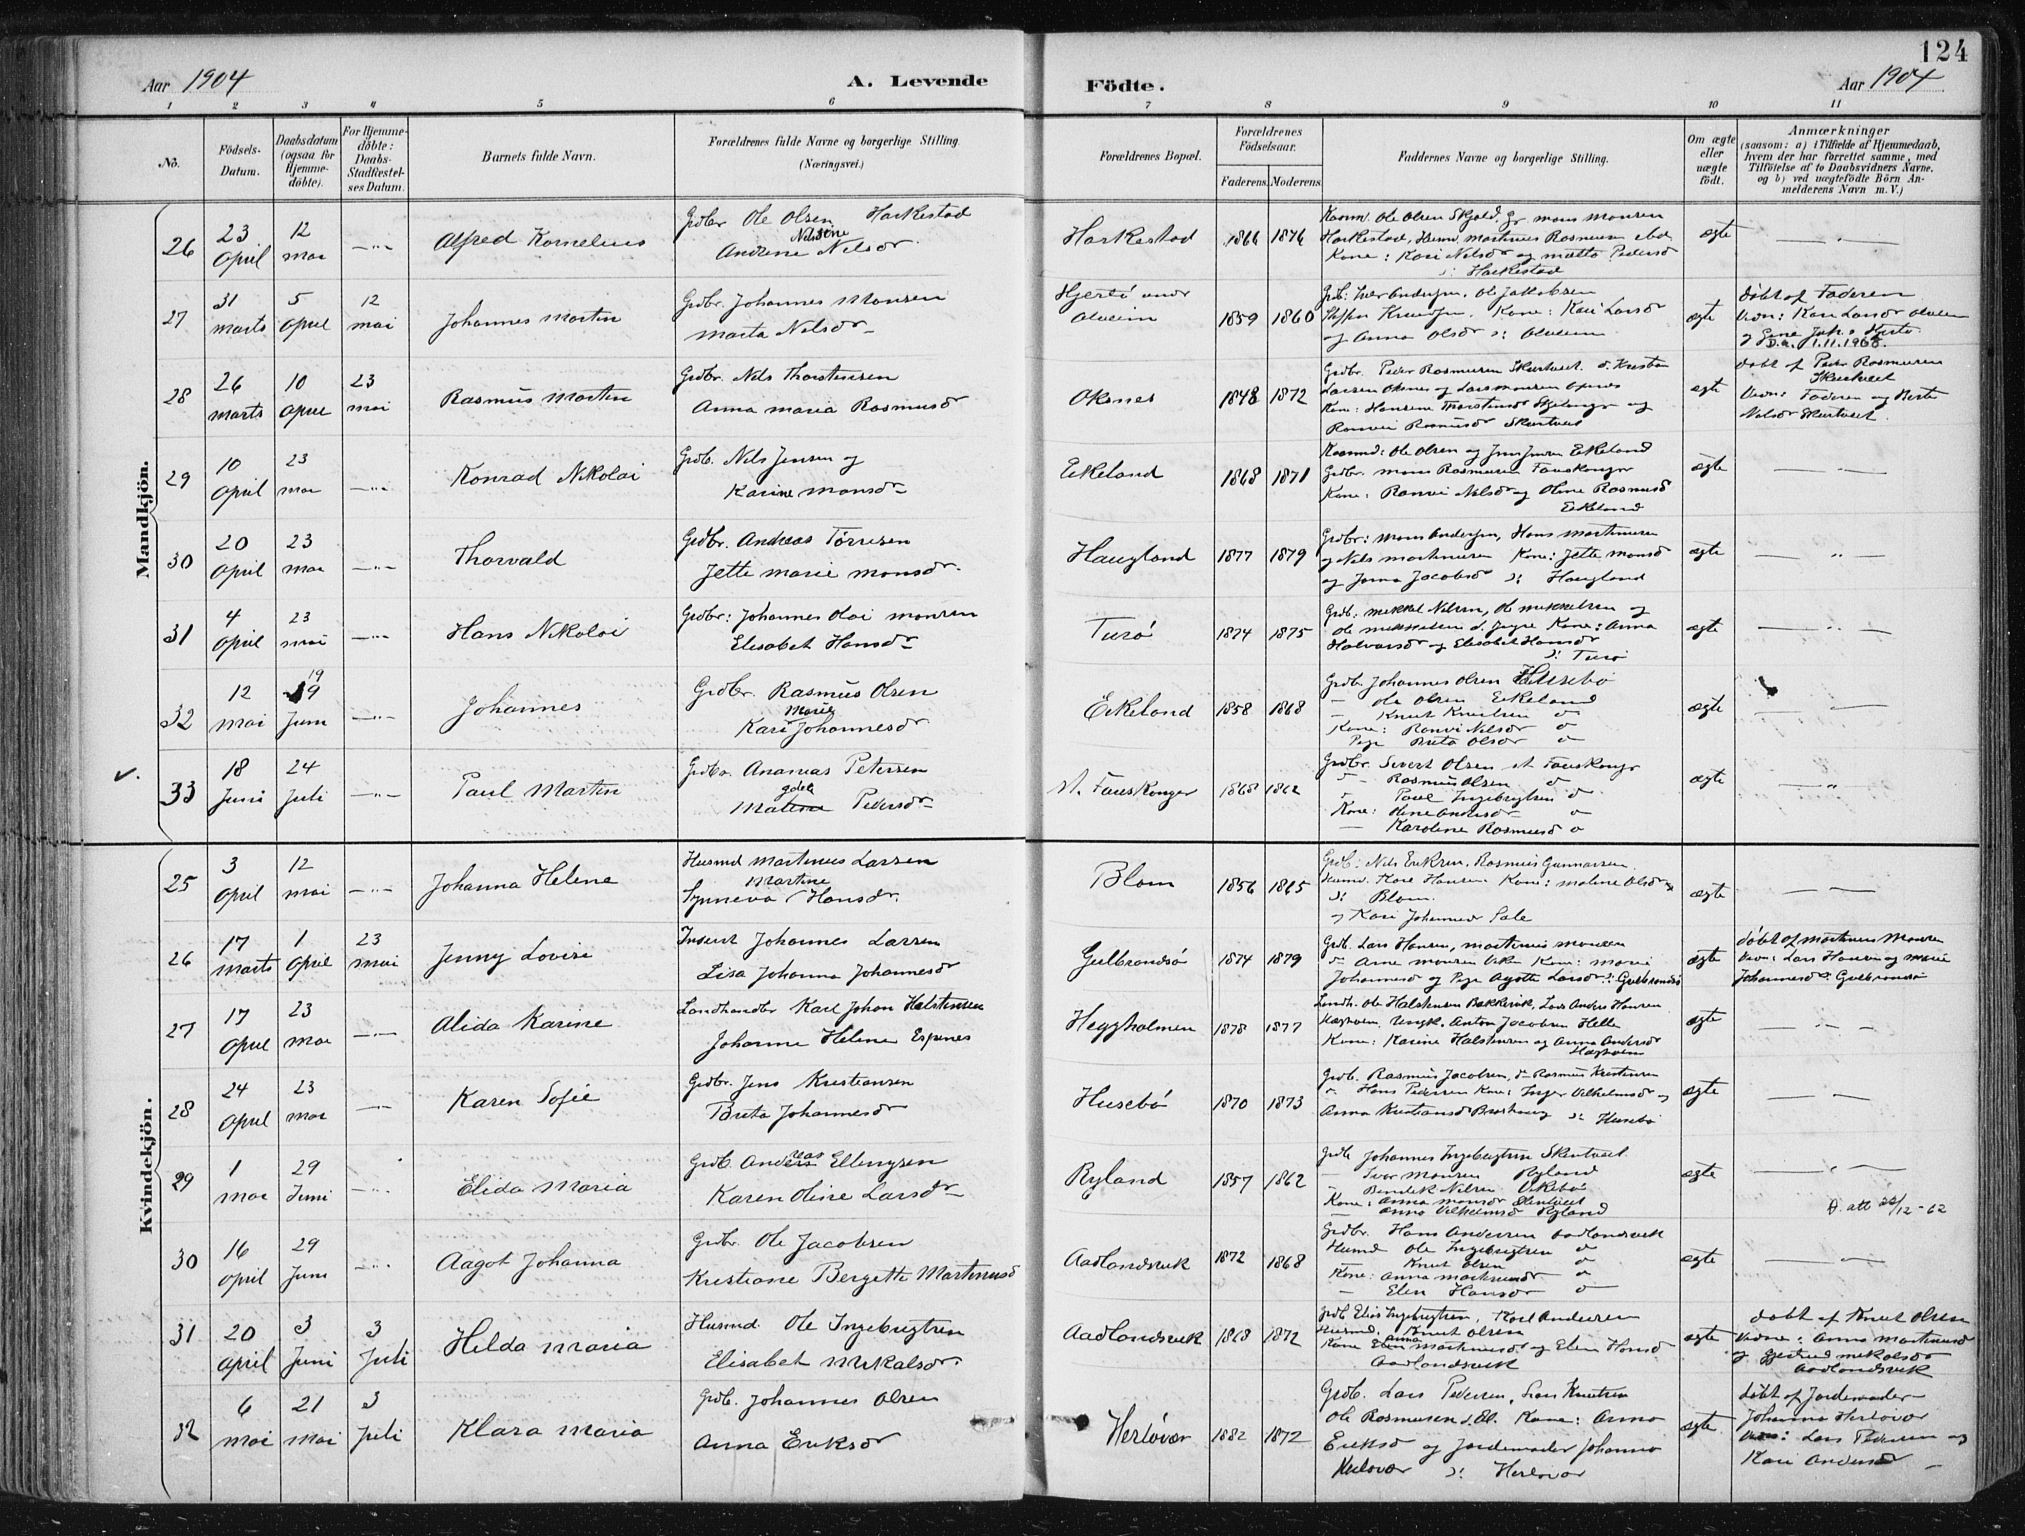 124
Aar 1904
A. Levende
Födte.
Aar 1904
1 2 3 4 5 6 7 8 9 10 11
No.
Födsels-Datum.
Daabsdatum (ogsaa for Hjemme-døbte).
For Hjemme-døbte: Daabs-Stadfæstel-ses Datum.
Barnets fulde Navn.
Forældrenes fulde Navne og borgerlige Stilling (Næringsvei).
Forældrenes Bopæl.
Forældrenes Födselsaar.
Faderens. Moderens.
Faddernes Navne og borgerlige Stilling.
Om ægte eller uægte født.
Anmærkninger
(saasom: a) i Tilfælde af Hjemmedaab, hvem der har forrettet samme, med Tilföielse af to Daabsvidners Navne, og b) ved uægtefödte Börn An-melderens Navn m. V.)
Mandkjön.
26 23 April 12 mai Alfred Kornelius
Grdbr Ole Olsen Harkestad
Andrene Nilsdr.
Harkestad 1866 1876
Kaarm. Ole Olsen Skjold. gr. Mons Monsen
Harkestad, Husm. Martinus Rasmusen ibd
Kone: Kari Nilsdr og Mette Pedersd
Harkestad
ægte
27 31 Marts 5 April 12 mai Johannes Martin
Grdbr. Johannes Monsen
Marta Nilsdr
Hjertö under Alveim 1859 1860
Kone: Kari Larsdr
og Anna Olsdr
ægte
døbt af Faderen
Vidn: Kari Larsdr
D.a. 1.11.1968.
28 26 Marts 10 April 23 mai Rasmus Martin
Grdbr. Nils Thorstensen
Anna Maria Rasmusdr
Oksnes 1848 1872
Grdbr. Peder Rasmusen Skurtveit
Rasmusdr Skurtveit
ægte
døbt af Peder Rasmusen Skurtveit
Vidn: Faderen og Berte
Nilsdr Skurtveit.
29 10 April 23 mai Konrad Nikolai
Grdb. Nils Jensen og
Karine Monsdr
Eikeland 1868 1871
Kaarmd: Ole Olsen og Jens Jensen Eikeland
Grdbr. Mons Rasmusen Fauskanger
Kone: Ranvei Nilsd og Oline Rasmusd
Eikeland
ægte
30 20 April 23 mai Thorvald
Grdbr. Andreas Törresen
Jette Marie Monsdr.
Haugland 1877 1879
Grdbr: Mons Andersen, Hans Martinusen
og Nils Martinusen Kone: Jette Monsd
og Jacobsd Haugland
ægte
31 4 April 23 mai Hans Nikolai
Grdbr: Johannes Olai Monsen
Elisabet Hansdr
Turö 1874 1875
Grdb: Mikkel Nilsen, Ole Mikkelsen og
Kone: Anna
Halvorsdr og Elisabet Hansdr
Turö
ægte
32 12 mai 19 Juni Johannes
Grdbr. Rasmus Olsen
Marie
Kari Johannesdr
Eikeland 1858 1868
Grdb. Johannes Olsen Husebö
Ole Olsen Eikeland
Knut Knutsen
Kone: Ranvi Nilsdr
Pige Brita Olsdr
ægte
33 18 Juni 24 Juli Paul Martin
Grdbr. Ananias Petersen
Pedersdr
Fauskanger 1868 1862
Grdbr. Sivert Olsen Fauskangr
Rasmus Olsen
Paul Ingebrigtsen
Kone:
Karoline Rasmusd
ægte
Kvindekjön.
25 3 April 12 mai Johanna Helene
Husmd Martinus Larsen
Martine
Synneva Hansdr.
Blom 1856 1865
Grdb: Nils Eriksen, Rasmus Gunnarsen
Kone: Malene Olsdr
Blom
og Kari Johannesdr Sale
ægte
26 17 Marts 1 April 23 mai Jenny Lovise
Inderst Johannes Larsen
Lisa Johanna Johannesdr
Gulbrandsö 1874 1879
Grdb. Lars Hansen, Martinus Monsen
Johannesd og Pige Agate Larsdr Gulbrandsö
ægte
døbt af Martinus Monsen
Vidn: Lars Hansen og Marie
Johannesd Gulbrandsö
27 17 April 23 mai Alida Karine
Landhandler Karl Johan Halstensen
Johanne Helene Espenes
Heggholmen 1878 1877
Landh. Ole Halstensen Bakkevik, Lars Anders Hansen
Ungk. Anton Jacobsen Helle
Kone: Karine Halstensen og Anna Andersdr
ægte
28 24 April 23 mai Karen Sofie
Grdbr. Jens Kristiansen
Brita Johannesdr
Husebö 1870 1873
Grdb. Rasmus Jacobsen, Rasmus Kristensen
Hans Pedersen Kone: Inger Vilhelmsdr og
Anna Kristiansd Husebö
ægte
29 1 mai 29 Juni Elida Maria
Grdb. Andreas Ellingsen
Karen Oline Larsdr
Ryland 1857 1862
Grdb Johannes Ingebrigtsen Skurtveit
Iver Monsen Ryland
Bendik Nilsen
Kone: Anna Monsdr
Anna Vilhelmsd Ryland
ægte
D. att 22/12-62
30 16 April 29 Juni Aagot Johanna
Grdbr. Ole Jacobsen
Kristiane Bergitte Martinusd
Aadlandsvik 1872 1868
Grdbr. Hans Andersen Aadlandsvik
Husmd Ole Ingebrigtsen
Knut Olsen
Kone: Anna Martinusdr
Elen Hansdr
ægte
31 20 April 3 Juni 3 Juli Hilda Maria
Husmd Ole Ingebrigtsen
Elisabet Mikalsdr.
Aadlandsvik 1868 1872
Grdb Elias Ingebrigtsen, Karl Andersen
Husmd. Knut Olsen
Kone Anna Martinusd og Elen Hansd
Aadlandsvik
ægte
døbt af Knut Olsen
Vidne: Anna Martinusd
og Gjertrud Mikalsdr
Aadlandsvik
32 6 mai 21 mai 3 Juli Klara Maria
Grdb. Johannes Olsen
Anna Eriksdr
Herløvær 1882 1872
Grdb. Lars Pedersen, Lars Knutsen
Ole Rasmusen Kone: Anna
Eriksd og Jordemoder Johanna
Herlovær Herlovær
ægte
døbt af Jordemoder
Johanna Herlovær
Vidn: Lars Pedersen og
Kari Andersd